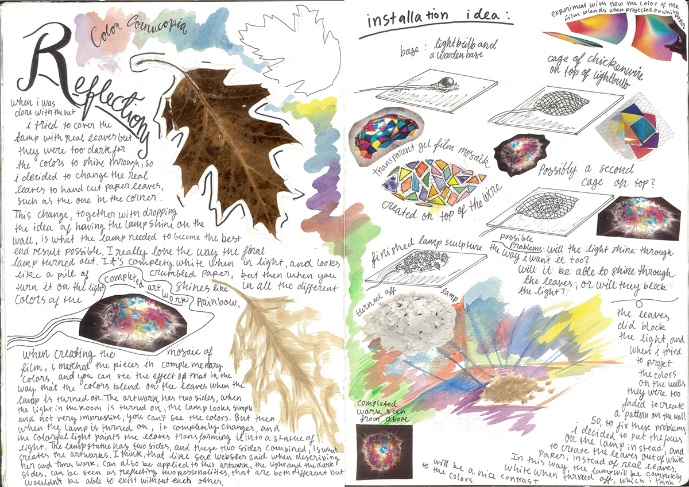 Color Cornucopia
Reflections
When I was
done with the net
I tried to cover the
lamp with real leaves but
they were too dark for
the colors to shine through, so
I decided to change the real
leaves to hand cut paper leaves,
such as the one in the corner.
This change, together with dropping
the idea of having the lamp shine on the
wall, is what the lamp needed to become the best
end result possible. I really love the way the final
lamp turned out. It's completely white when in light, and looks
like a pile of crumbled paper, but then when you
turn it on the light shines like in all the different
colors of the rainbow.
completed art work
When creating the mosaic of
film, I matched the pieces in complementary
colors, and you can see the effect of that in the
way that the colors blend on the leaves when the
lamp is turned on. The artwork has two sides, when
the light in the room is turned on, the lamp looks simple
and not very impressive, you can't see the colors. But then
when the lamp is turned on, it completely changes, and
the colorful light paints the leaves transforming it into a statue of
light. The lamp statue has two sides, and these two sides combined, is what
creates the artworks. I think that like Sue Webster said when describing
her and Tim's work, can also be applied to this artwork, the light and the dark
sides, can be seen as reflecting two personalities, that are both different but
wouldn't be able to exist without each other.
installation idea:
experiment with how the color of the
film blends when projected on white paper
base: lightbulb and
a wooden base
cage of chickenwire
on top of lightbulb
transparent gel film mosaik
created on top of the wire
Possibly a second
cage on top?
finished lamp sculpture
possible
problems: will the light shine through
the way I want it too?
will it be able to shine through
the leaves, or will they block
the light?
turned off lamp
the leaves
did block
the light, and
when I tried
to projet
the colors
on the walls
they were too
faded to create
a pattern on the wall
So, to fix these problems
I decided to put the focus
on the lamp instead, and
to create the leaves out of white
paper, instead of real leaves.
In this way, the lamp will be completely
white when turned off, which I think
will be a nice contrast
to the colors
completed
work seen
from above